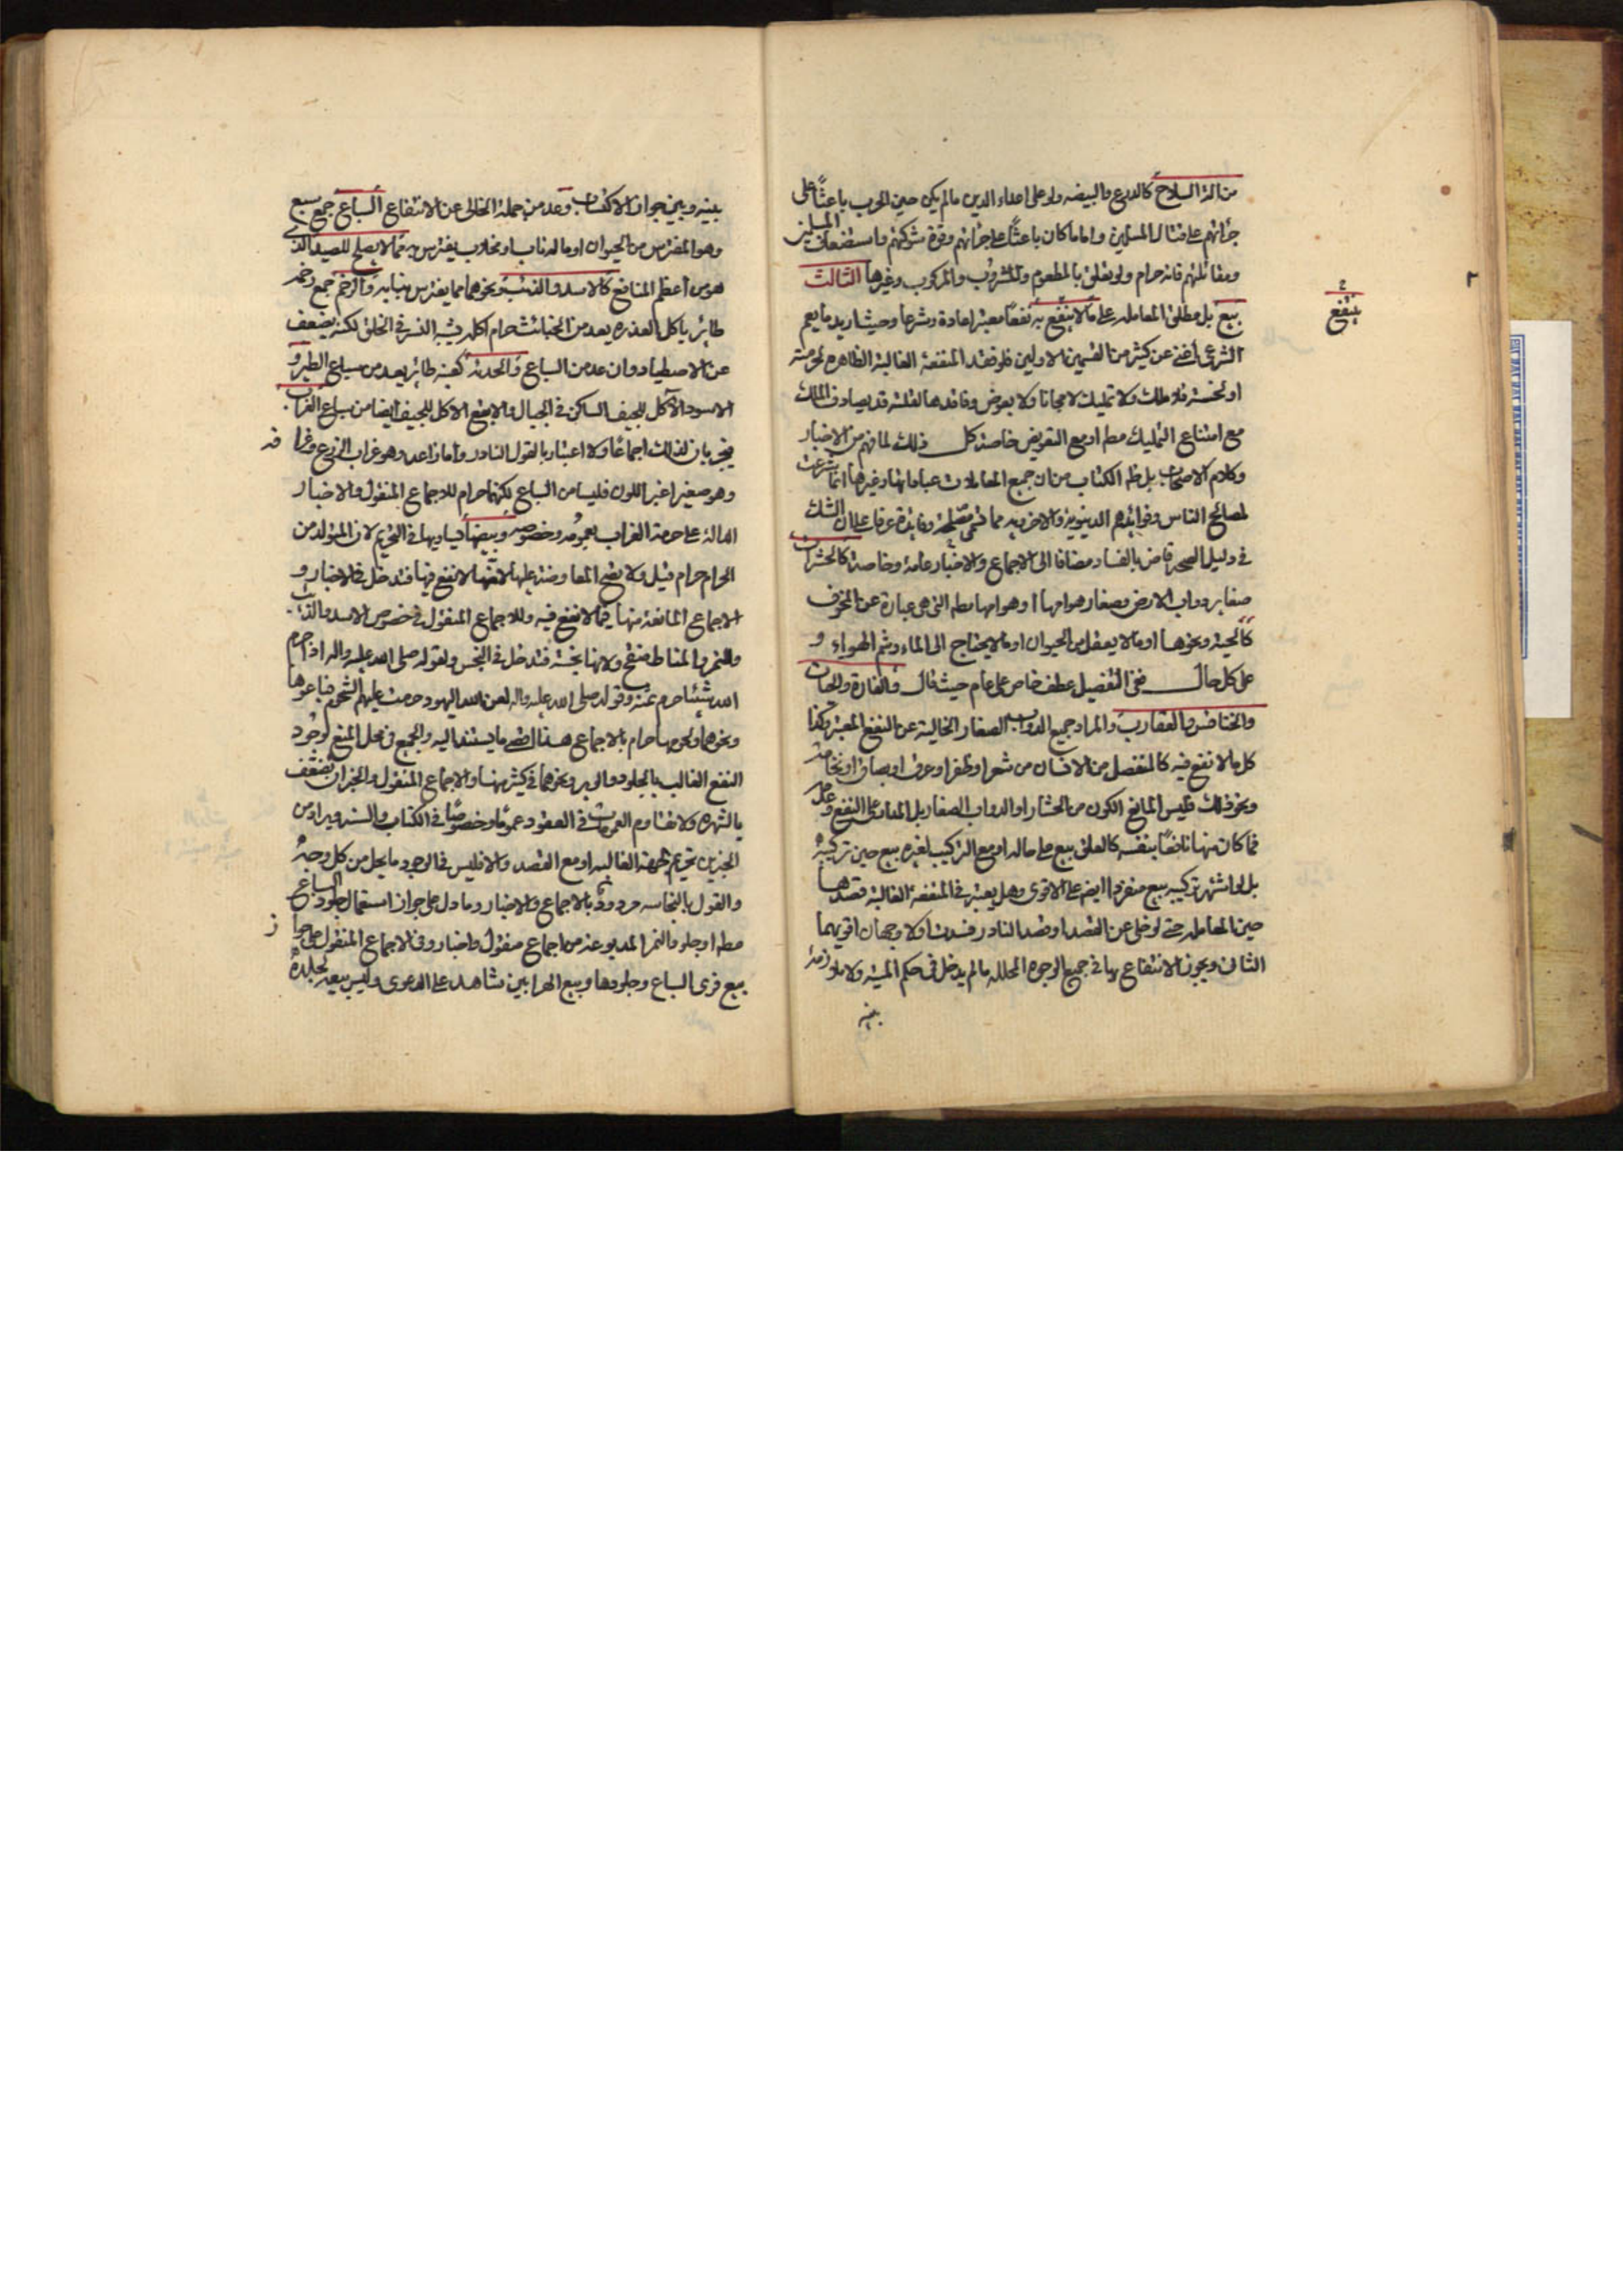 من آلة السلاح كالدرع والبيضه ولو على اعداء الدين مالم يكن حين الحرب باعثاً على
جرأتهم على قتال المسلمين واما ما كان باعثاً على جرأتهم وقوة شوكتهم واستضعاف المسلمين
ومقاتلتهم فانه حرام ولو تعلق بالمطعوم والمشروب والمركوب وغيرها الثالث
بيع بل مطلق المعامله على ما لا ينتفع به نفعاً معتبرا عادة وشرعا وحيث اريد ما يعم
ينتفع
الشرعى اغنى عن كثير من القسمين الاولين فلو فقد المنفعة الغالبة الظاهره لحرمته
او لخسته فلا ملك ولا تمليك لا مجانا ولا بعوض وفاقدها لقلته قد يصادف الملك
مع امتناع التمليك مطم او مع التعويض خاصة كل ذلك لما فهم من الاخبار
وكلام الاصحاب بل ظم الكتاب من ان جميع المعاملات عباداتها وغيرها انما شرعت
لمصالح الناس وفوائدهم الدنيوية والاخرويه مما تسمى مصلحة وفايدة عرفا على ان الشك
فى دليل الصحه قاض بالفساد مضافا الى الاجماع والاخبار عامة وخاصة كالحشرات
صغاير دواب الارض وصغار هوامها او هوامها مطم التى هى عبارة عن المخوف
كالحية ونحوها او مالا يعقل من الحيوان او مالا يحتاج الى الماء وشم الهواء و
على كل حال ففى التفصيل عطف خاص على عام حيث قال والفارة والحيات
والخنافس والعقارب والمراد جميع الدواب الصغار الخالية عن النفع المعتبر وكذا
كل مالا نفع فيه كالمنفصل من الانسان من شعر او ظفر او عرق او بصاق او نخامة
ونحو ذلك فليس المانع الكون من الحشار او الدواب الصغار بل المدار على النفع وعدمه
فما كان منها نافعاً بنفسه كالعلق بيع على حاله او مع التركيب لغيره بيع حين تركيبه
بل لو اشتهر تركيبه بيع منفردا ايضا على الاقوى وهل يعتبر فى المنفعة الغالبة قصدها
حين المعامله حتى لو خلى عن القصد او قصد النادر فسدت او لا وجهان اقويهما
الثانى ويجوز الانتفاع بها فى جميع الوجوه المحلله مالم يدخل فى حكم الميته ولا ملازمة
بينه
بينه وبين جواز الاكتساب وعد من جملة الخالى عن الانتفاع السباع جمع سبع
وهو المفترس من الحيوان او ماله ناب او مخلاب يفترس به مما لا يصلح للصيد الذى
هو من اعظم المنافع كالاسد والذئب ونحوهما مما يفترس بنابه والرخم جمع رخمه
طائر ياكل العذره يعد من الخبائث حرام اكله يشبه النسر فى الخلق لكنه يضعف
عن الاصطياد وان عد من السباع والحدئة كعنبه طائر يعد من سباع الطير و الغراب
الاسود الآكل للجيف الساكن فى الجبال والابقع الاكل للجيف ايضا من سباع
فيجريان لذلك اجماعاً ولا اعتبار بالقول النادر واما زاغه وهو غراب الزرع وغدا فه
وهو صغير اغبر اللون فليسا من السباع لكنهما حرام للاجماع المنقول والاخبار
الدالة على حرمة الغراب بعمومه وخصوصه وبيضها فيساويها فى التحريم لان المتولد من
الحرام حرام قيل ولا يصح المعاوضة عليها لانها لا نفع فيها فتدخل فى الاخبار و
الاجماع المانعة منها فيما لا نفع فيه وللاجماع المنقول فى خصوص الاسد والذئب
والنمر والمناط منقح ولانها نجسة فتدخل فى النجس ولقوله صلى الله عليه واله اذا حرم
الله شيئا حرم ثمنه وقوله صلى الله عليه واله لعن الله اليهود حرمت عليهم الشحوم فباعوها
ونحوهما ولحومها حرام بالاجماع هذا اقصى ما يستند اليه والجميع فى محل المنع لوجود
النفع الغالب بالجلود والوبر ونحوهما فى كثير منها والاجماع المنقول والخبران بضعف
بالشهره ولا تقاوم العمومات فى العقود عموماً وخصوصاً فى الكتاب والسنه ويراد من
الخبرين تحريم الجهة الغالبه او مع القصد والا فليس فى الوجود ما يحل من كل وجه
والقول بالنجاسه مردود بالاجماع والاخبار وما دل على جواز استعمال جلود السباع
مطم او جلود النمر المدبوغه من اجماع منقول واخبار وفى الاجماع المنقول على جوا ز
بيع فرى السباع وجلودها وبيع الهرابين شاهد على الدعوى وليس بيعه لجلده